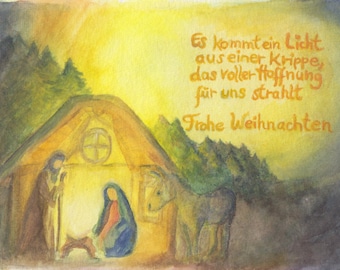 Es kommt ein Licht
aus einer Krippe,
das voller Hoffnung
für uns strahlt
Frohe Weihnachten